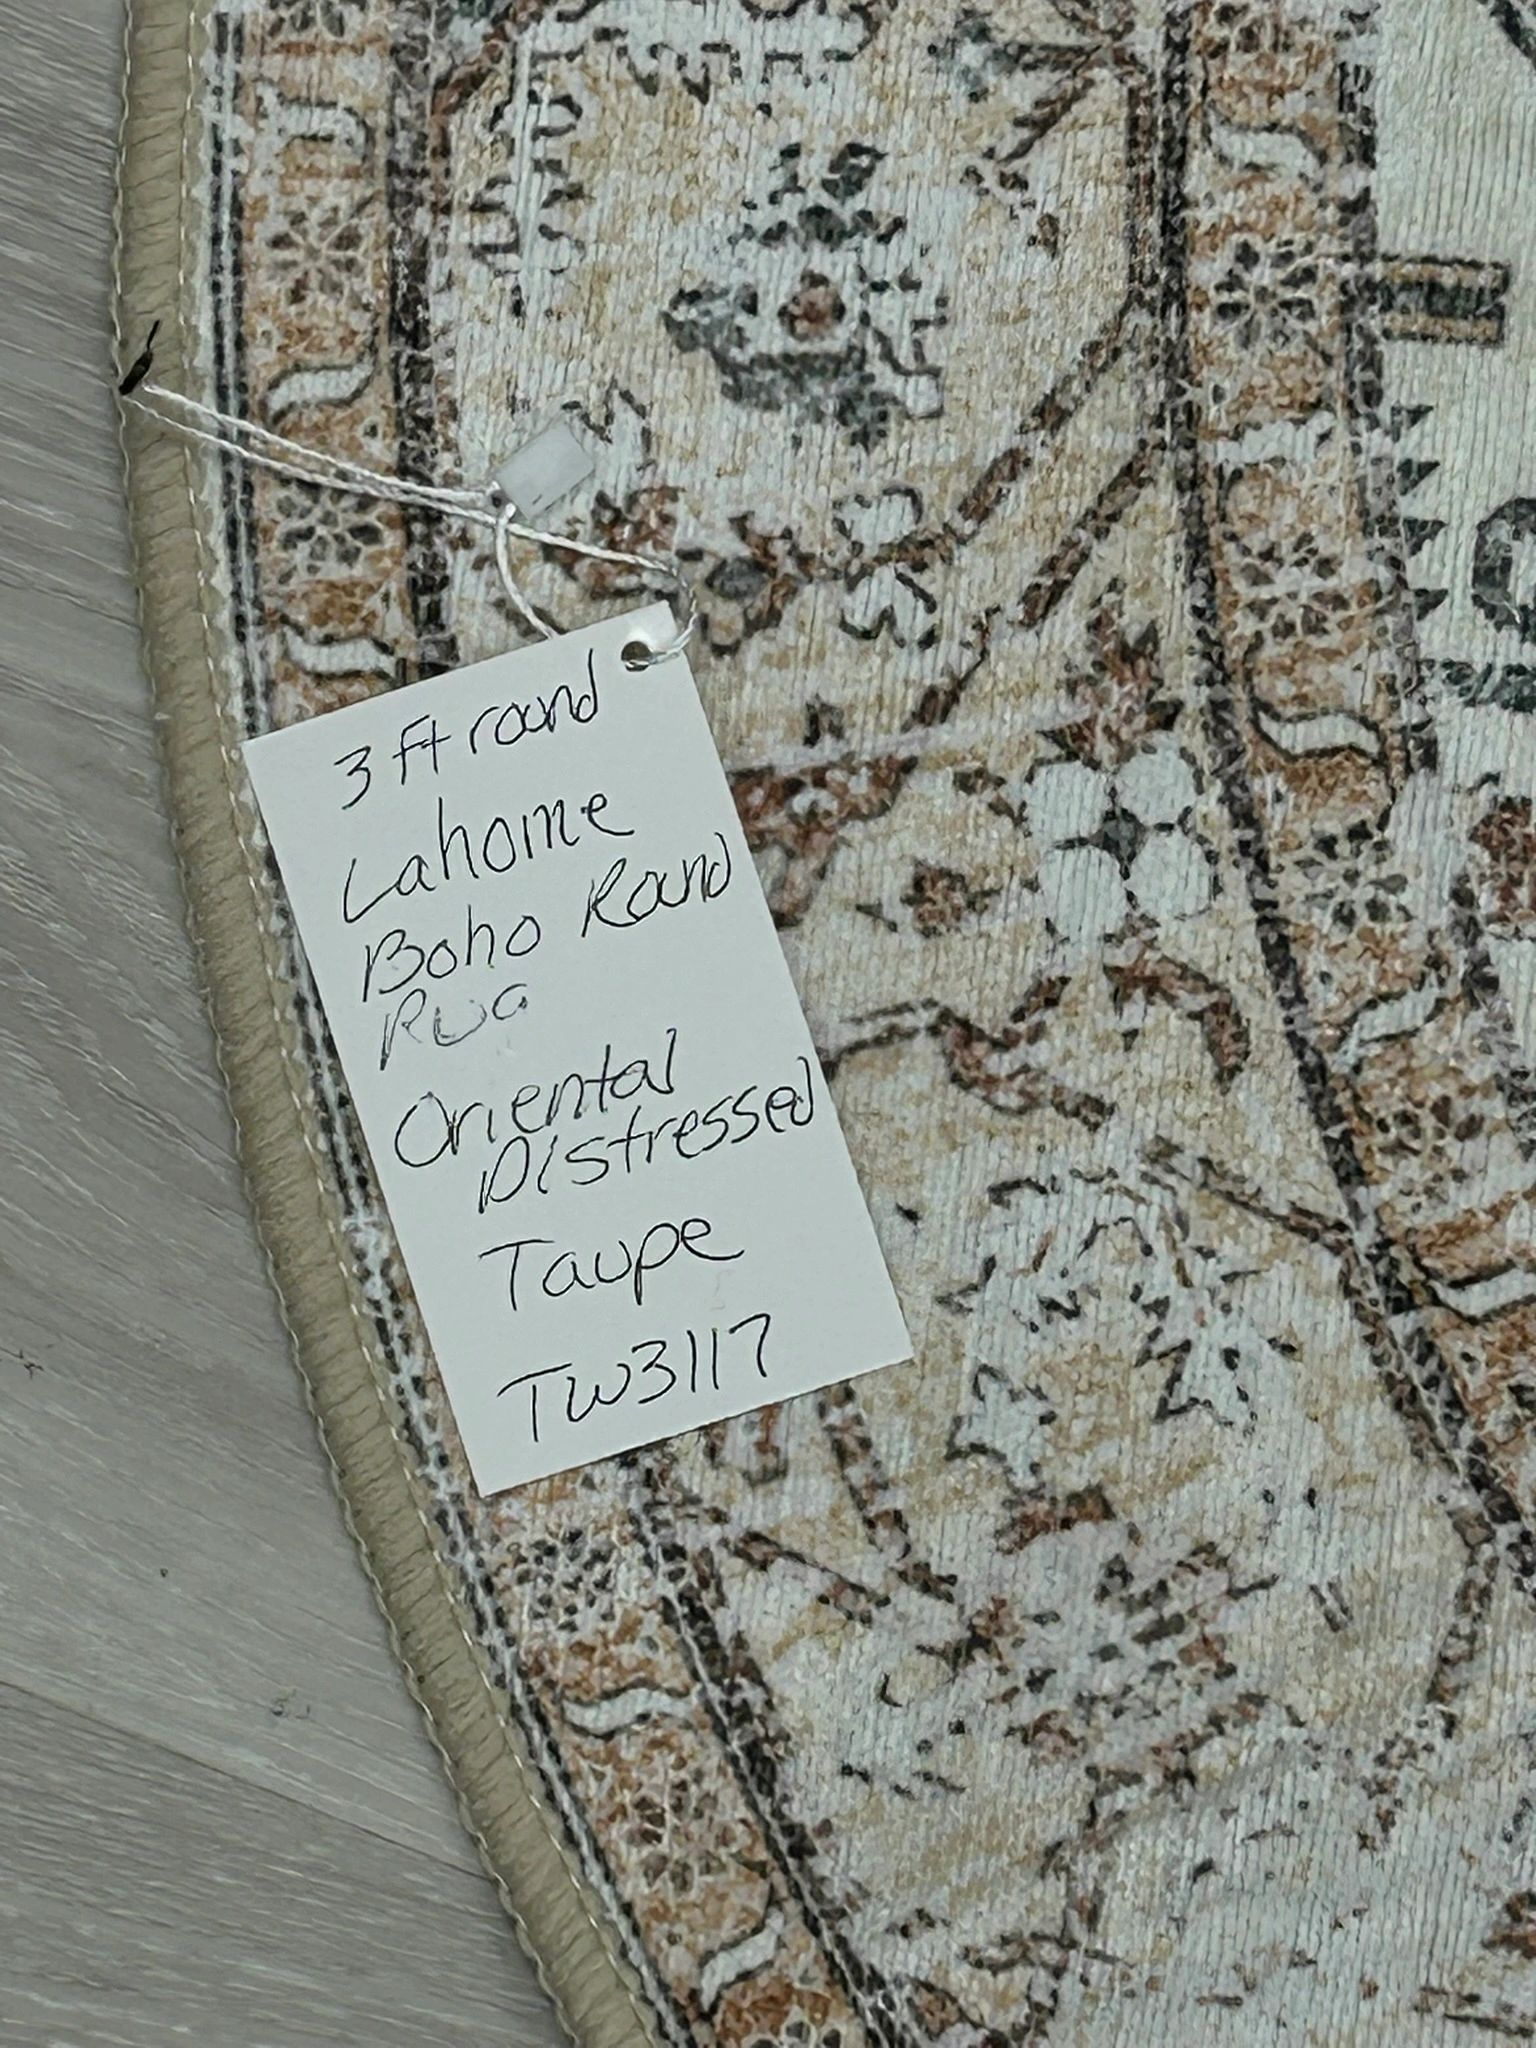 3 ft round
Lahome
Boho Round
Rug
Oriental
Distressed
Taupe
TW3117